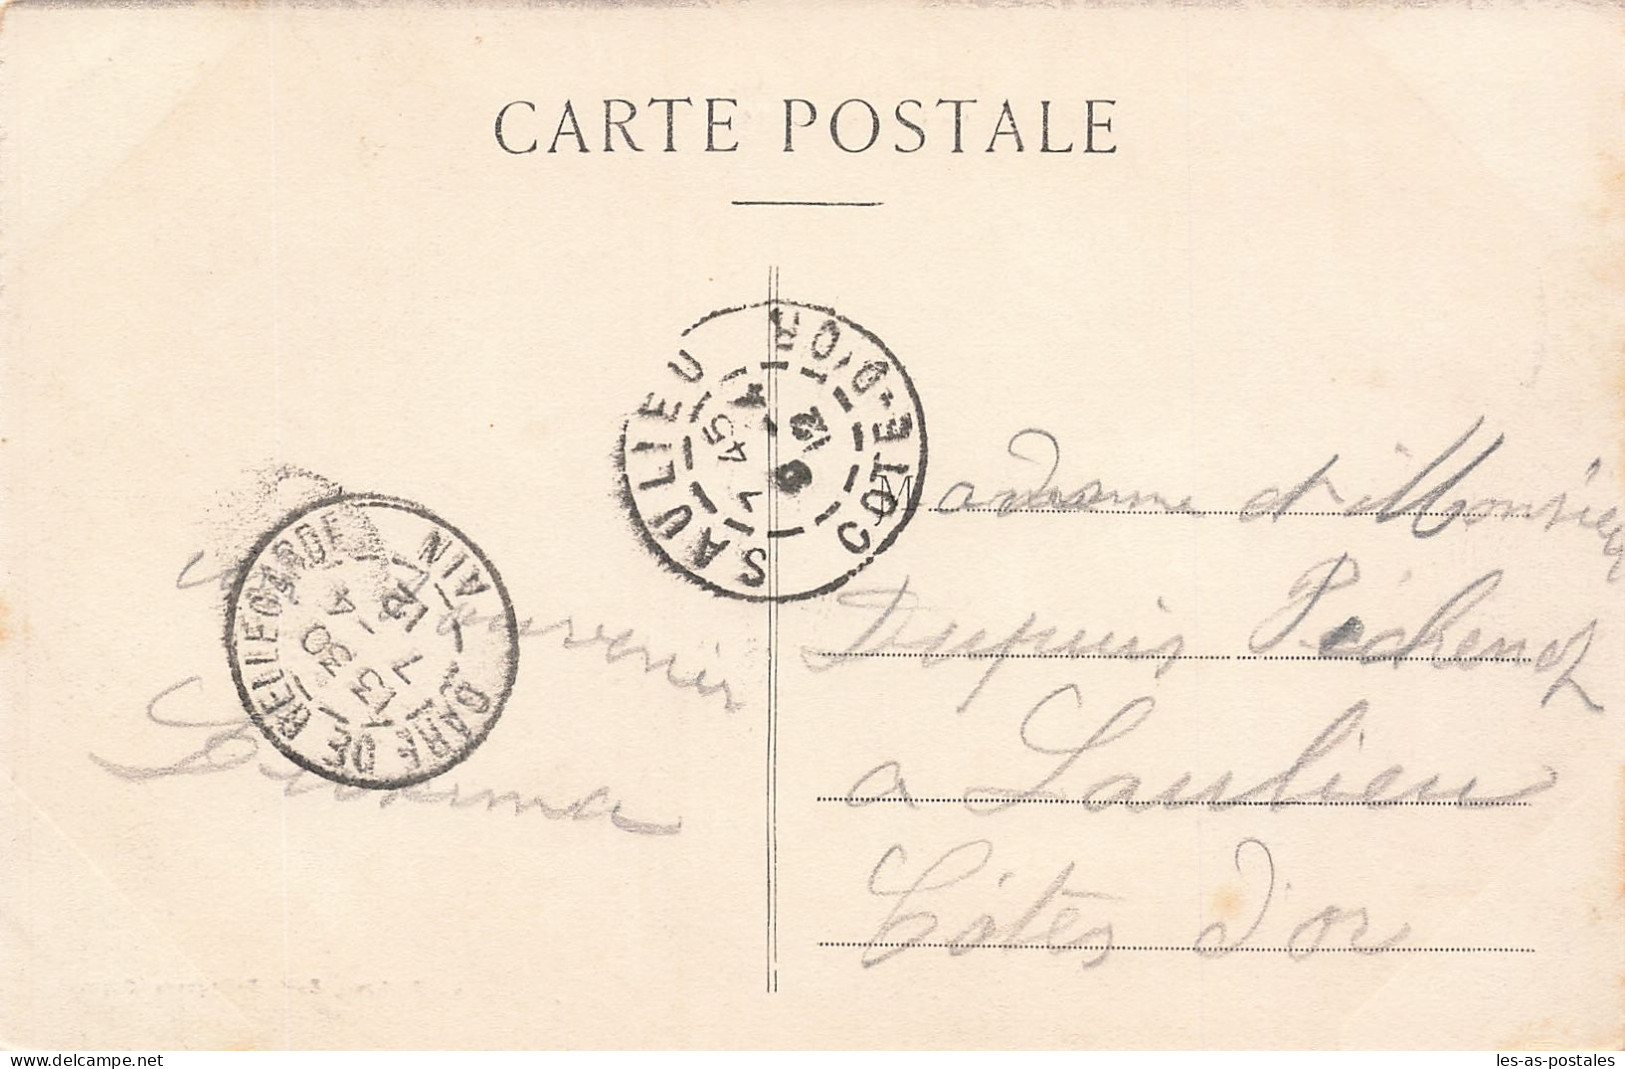 CARTE POSTALE
SAULIEU
COTE-D'OR
7 45
9 12
GARE DE BELLEGARDE
AIN
13 30
7
12
Souvenir
Madame et Monsieur
Dupuis Péchenot
a Saulieu
Côtes d'or
delcampe.net
les-as-postales